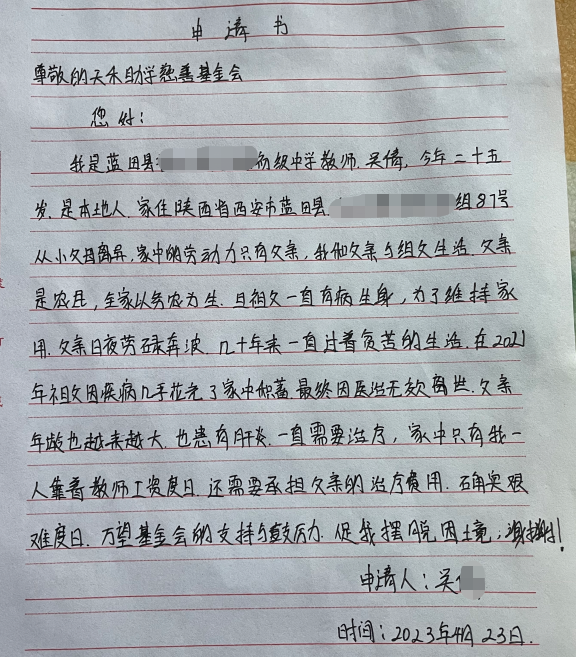 申请书
尊敬的天禾助学慈善基金会
您好：
我是蓝田县 高级中学教师 吴倩，今年二十五
岁.是本地人.家住陕西省西安市蓝田县 组87号
从小父母离异，家中的劳动力只有父亲，我和父亲与祖父生活.父亲
是农民，全家以务农为生.且祖父一直有病生身，为了维持家
用.父亲日夜劳碌奔波.几十年来一直过着贫苦的生活.在2021
年祖父因疾病几乎花光了家中积蓄.最终因医治无效离世.父亲
年龄也越来越大.也患有肝炎.一直需要治疗，家中只有我一
人靠着教师工资度日.还需要承担父亲的治疗费用.确实艰
难度日.万望基金会的支持与鼓励力.促我摆脱困境；谢谢！
申请人：吴
时间：2023年4月23日.